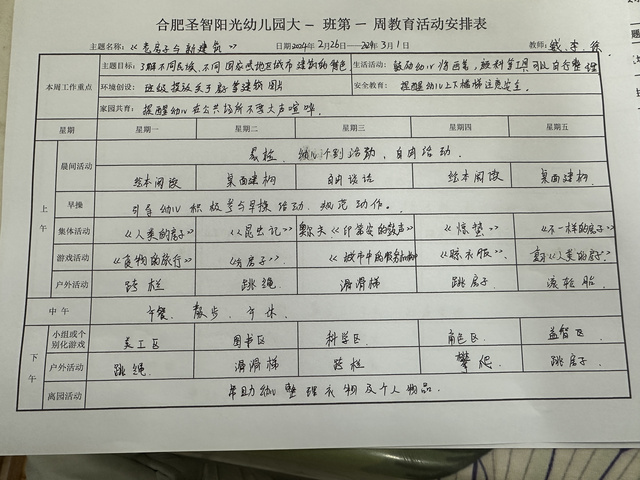 合肥圣智阳光幼儿园大一班第一周教育活动安排表
主题名称:《老房子与新建筑》 日期2024年2月26日—2024年3月1日 教师:钱、李、徐
本周工作重点 主题目标: 了解不同民族、不同国家或地区城市建筑的特色 生活活动: 鼓励幼儿将画笔、颜料等工具可以自行整理
环境创设: 班级投放关于房子建筑图片 安全教育: 提醒幼儿上下楼梯注意安全.
家园共育: 提醒幼儿在公共场所不要大声喧哗.
星期 星期一 星期二 星期三 星期四 星期五
上午 晨间活动 晨检、幼儿签到活动、自由活动.
绘本阅读 桌面建构 自由谈话 绘本阅读 桌面建构
早操 引导幼儿积极参与早操活动、规范动作.
集体活动 《人类的房子》 《昆虫记》 奥尔夫《印第安的鼓声》 《惊蛰》 《不一样的房子》
游戏活动 《食物的旅行》 《房子》 《城市中的 《晾衣服》 《人类的房子》
户外活动 跨栏 跳绳 滑滑梯 跳房子 滚轮胎
中午 午餐、散步、午休.
下午 小组或个别化游戏 美工区 图书区 科学区 角色区 益智区
户外活动 跳绳. 滑滑梯 跨栏 攀爬 跳房子
离园活动 帮助幼儿整理衣物及个人物品.